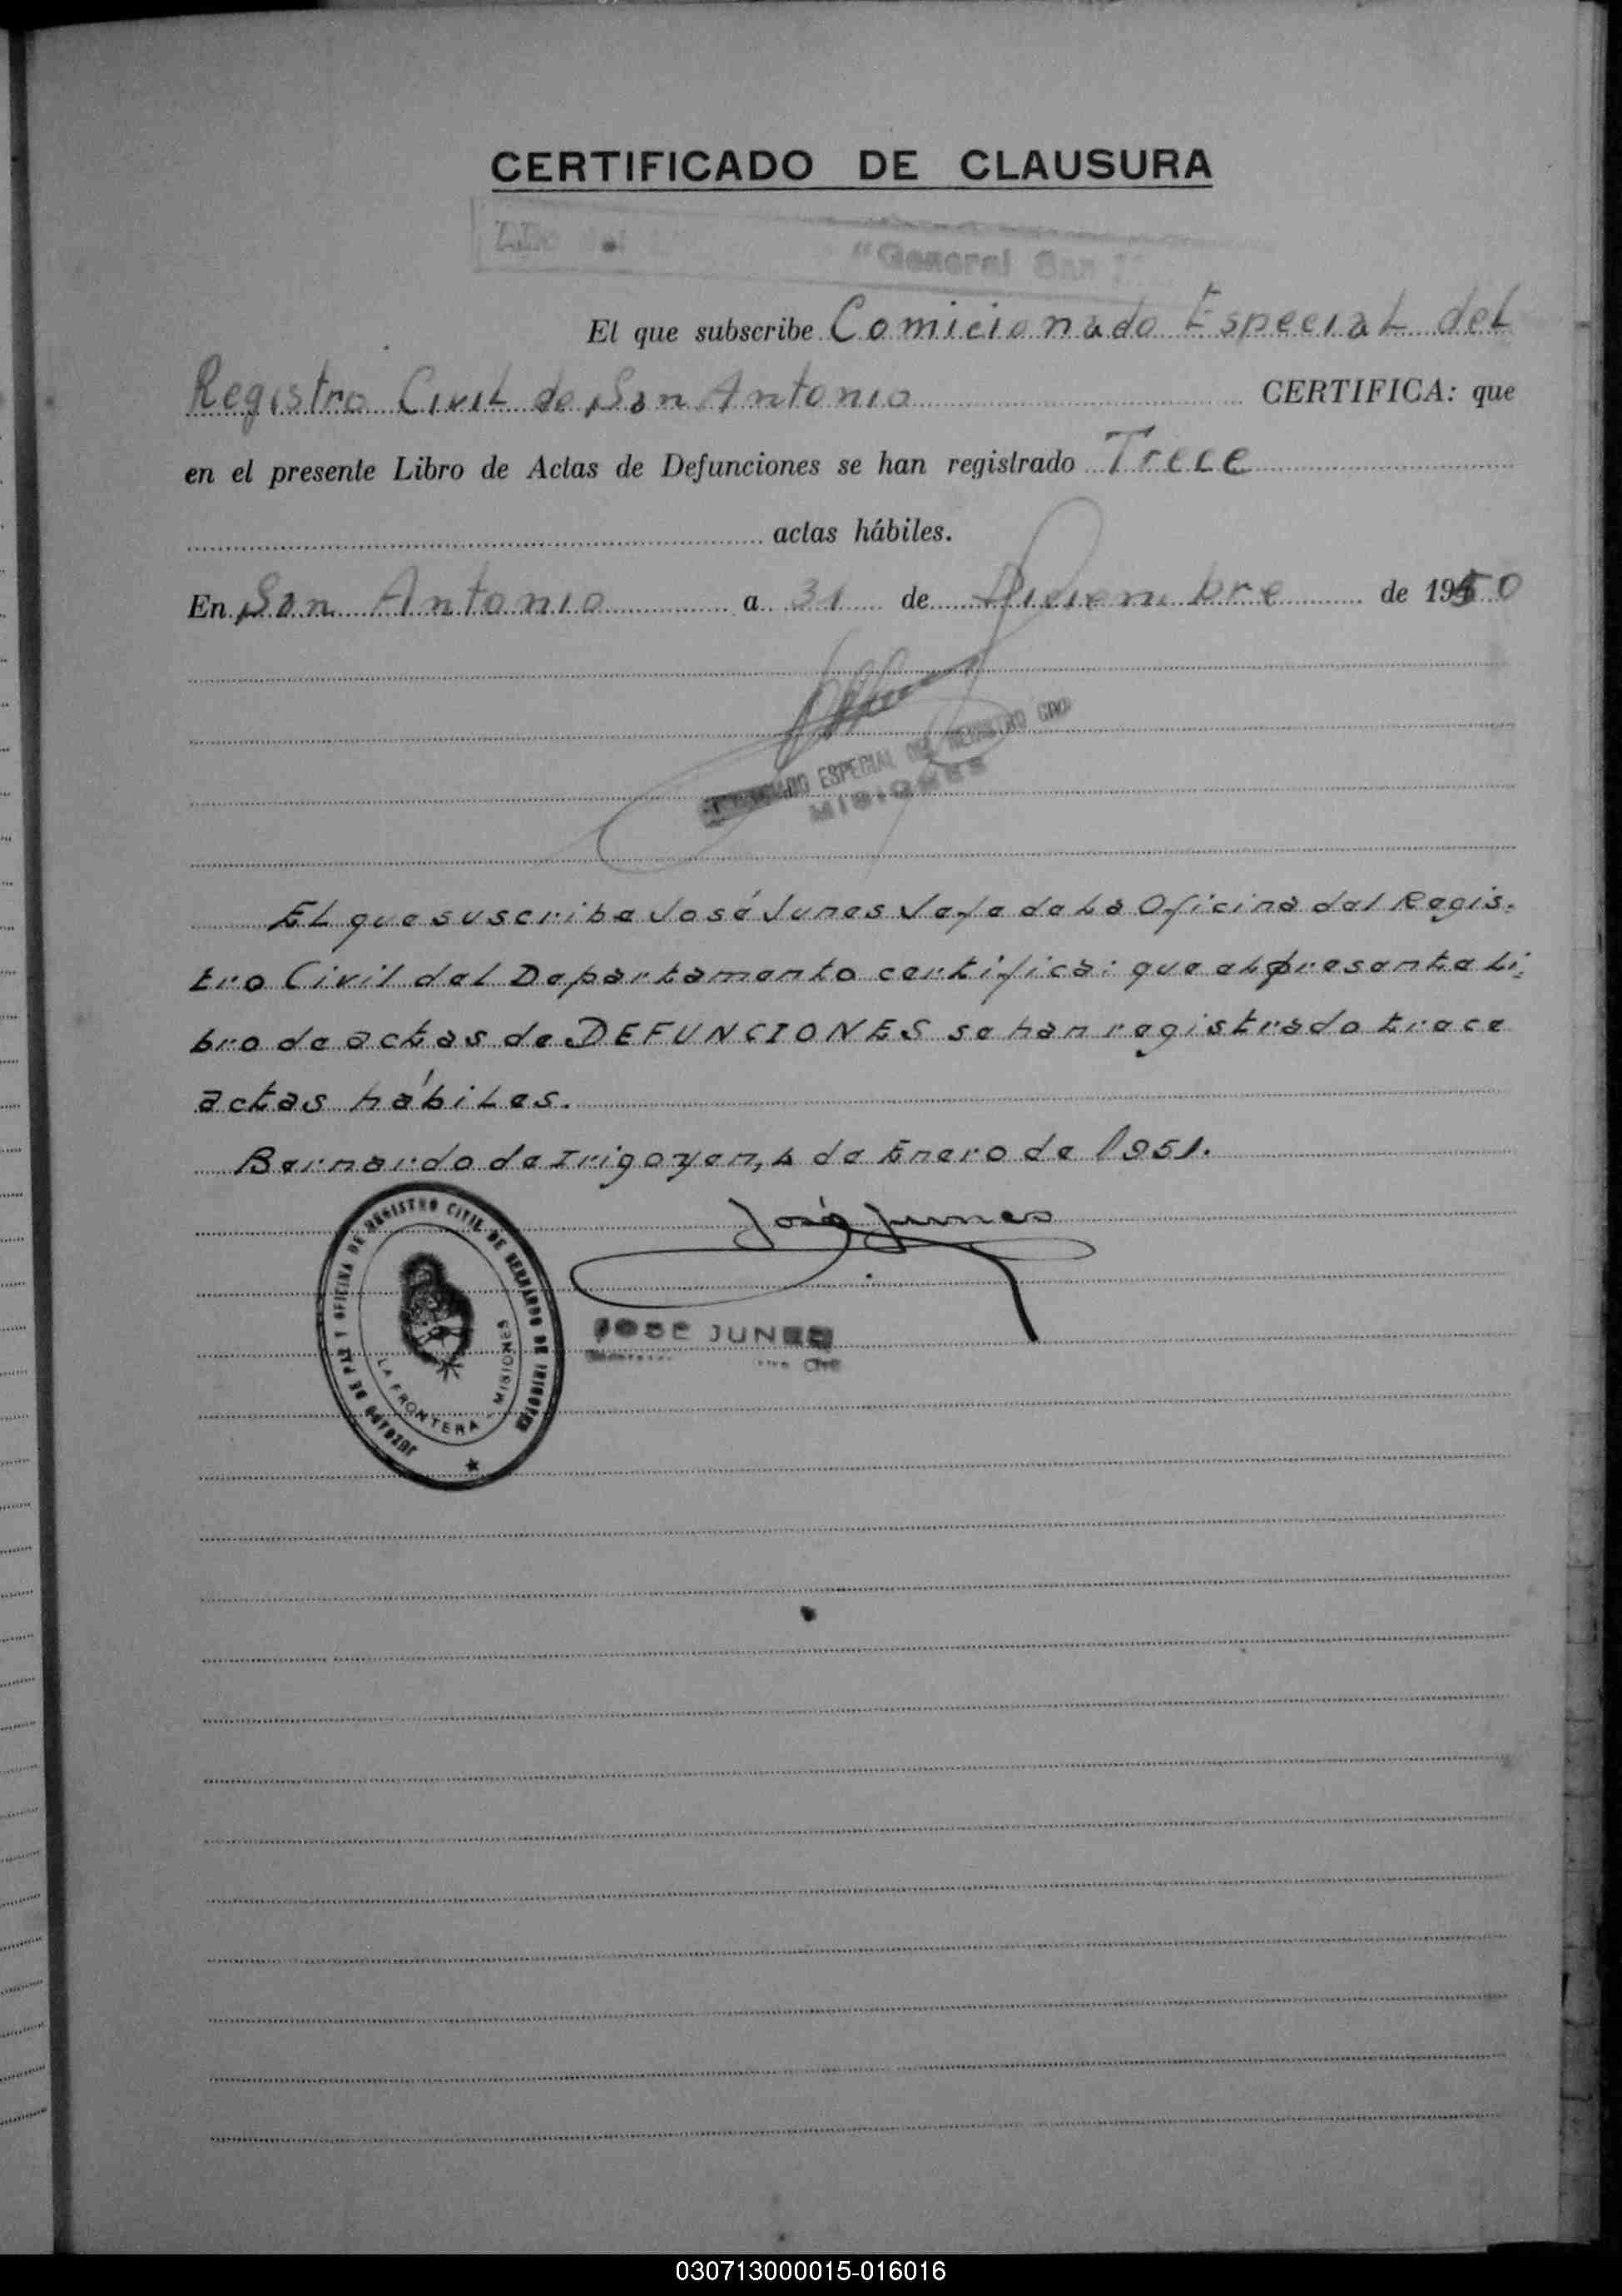 CERTIFICADO DE CLAUSURA
"General San
El que subscribe Comicionado Especial del
Registro Civil de San Antonio CERTIFICA: que
en el presente Libro de Actas de Defunciones se han registrado Trece
actas hábiles.
En San Antonio a 31 de Diciembre de 1950
ESPECIAL DEL REGISTRO
MISIONES
El que suscribe José Junes Jefe de la Oficina del Regis-
tro Civil del Departamento certifica: que el presente Li-
bro de actas de DEFUNCIONES se han registrado trece
actas hábiles.
Bernardo de Irigoyen, de Enero de 1951.
José Junes
JUZGADO DE PAZ Y OFICINA DE REGISTRO CIVIL DE BERNARDO DE IRIGOYEN
LA FRONTERA - MISIONES
JOSE JUNES
Civil
030713000015-016016